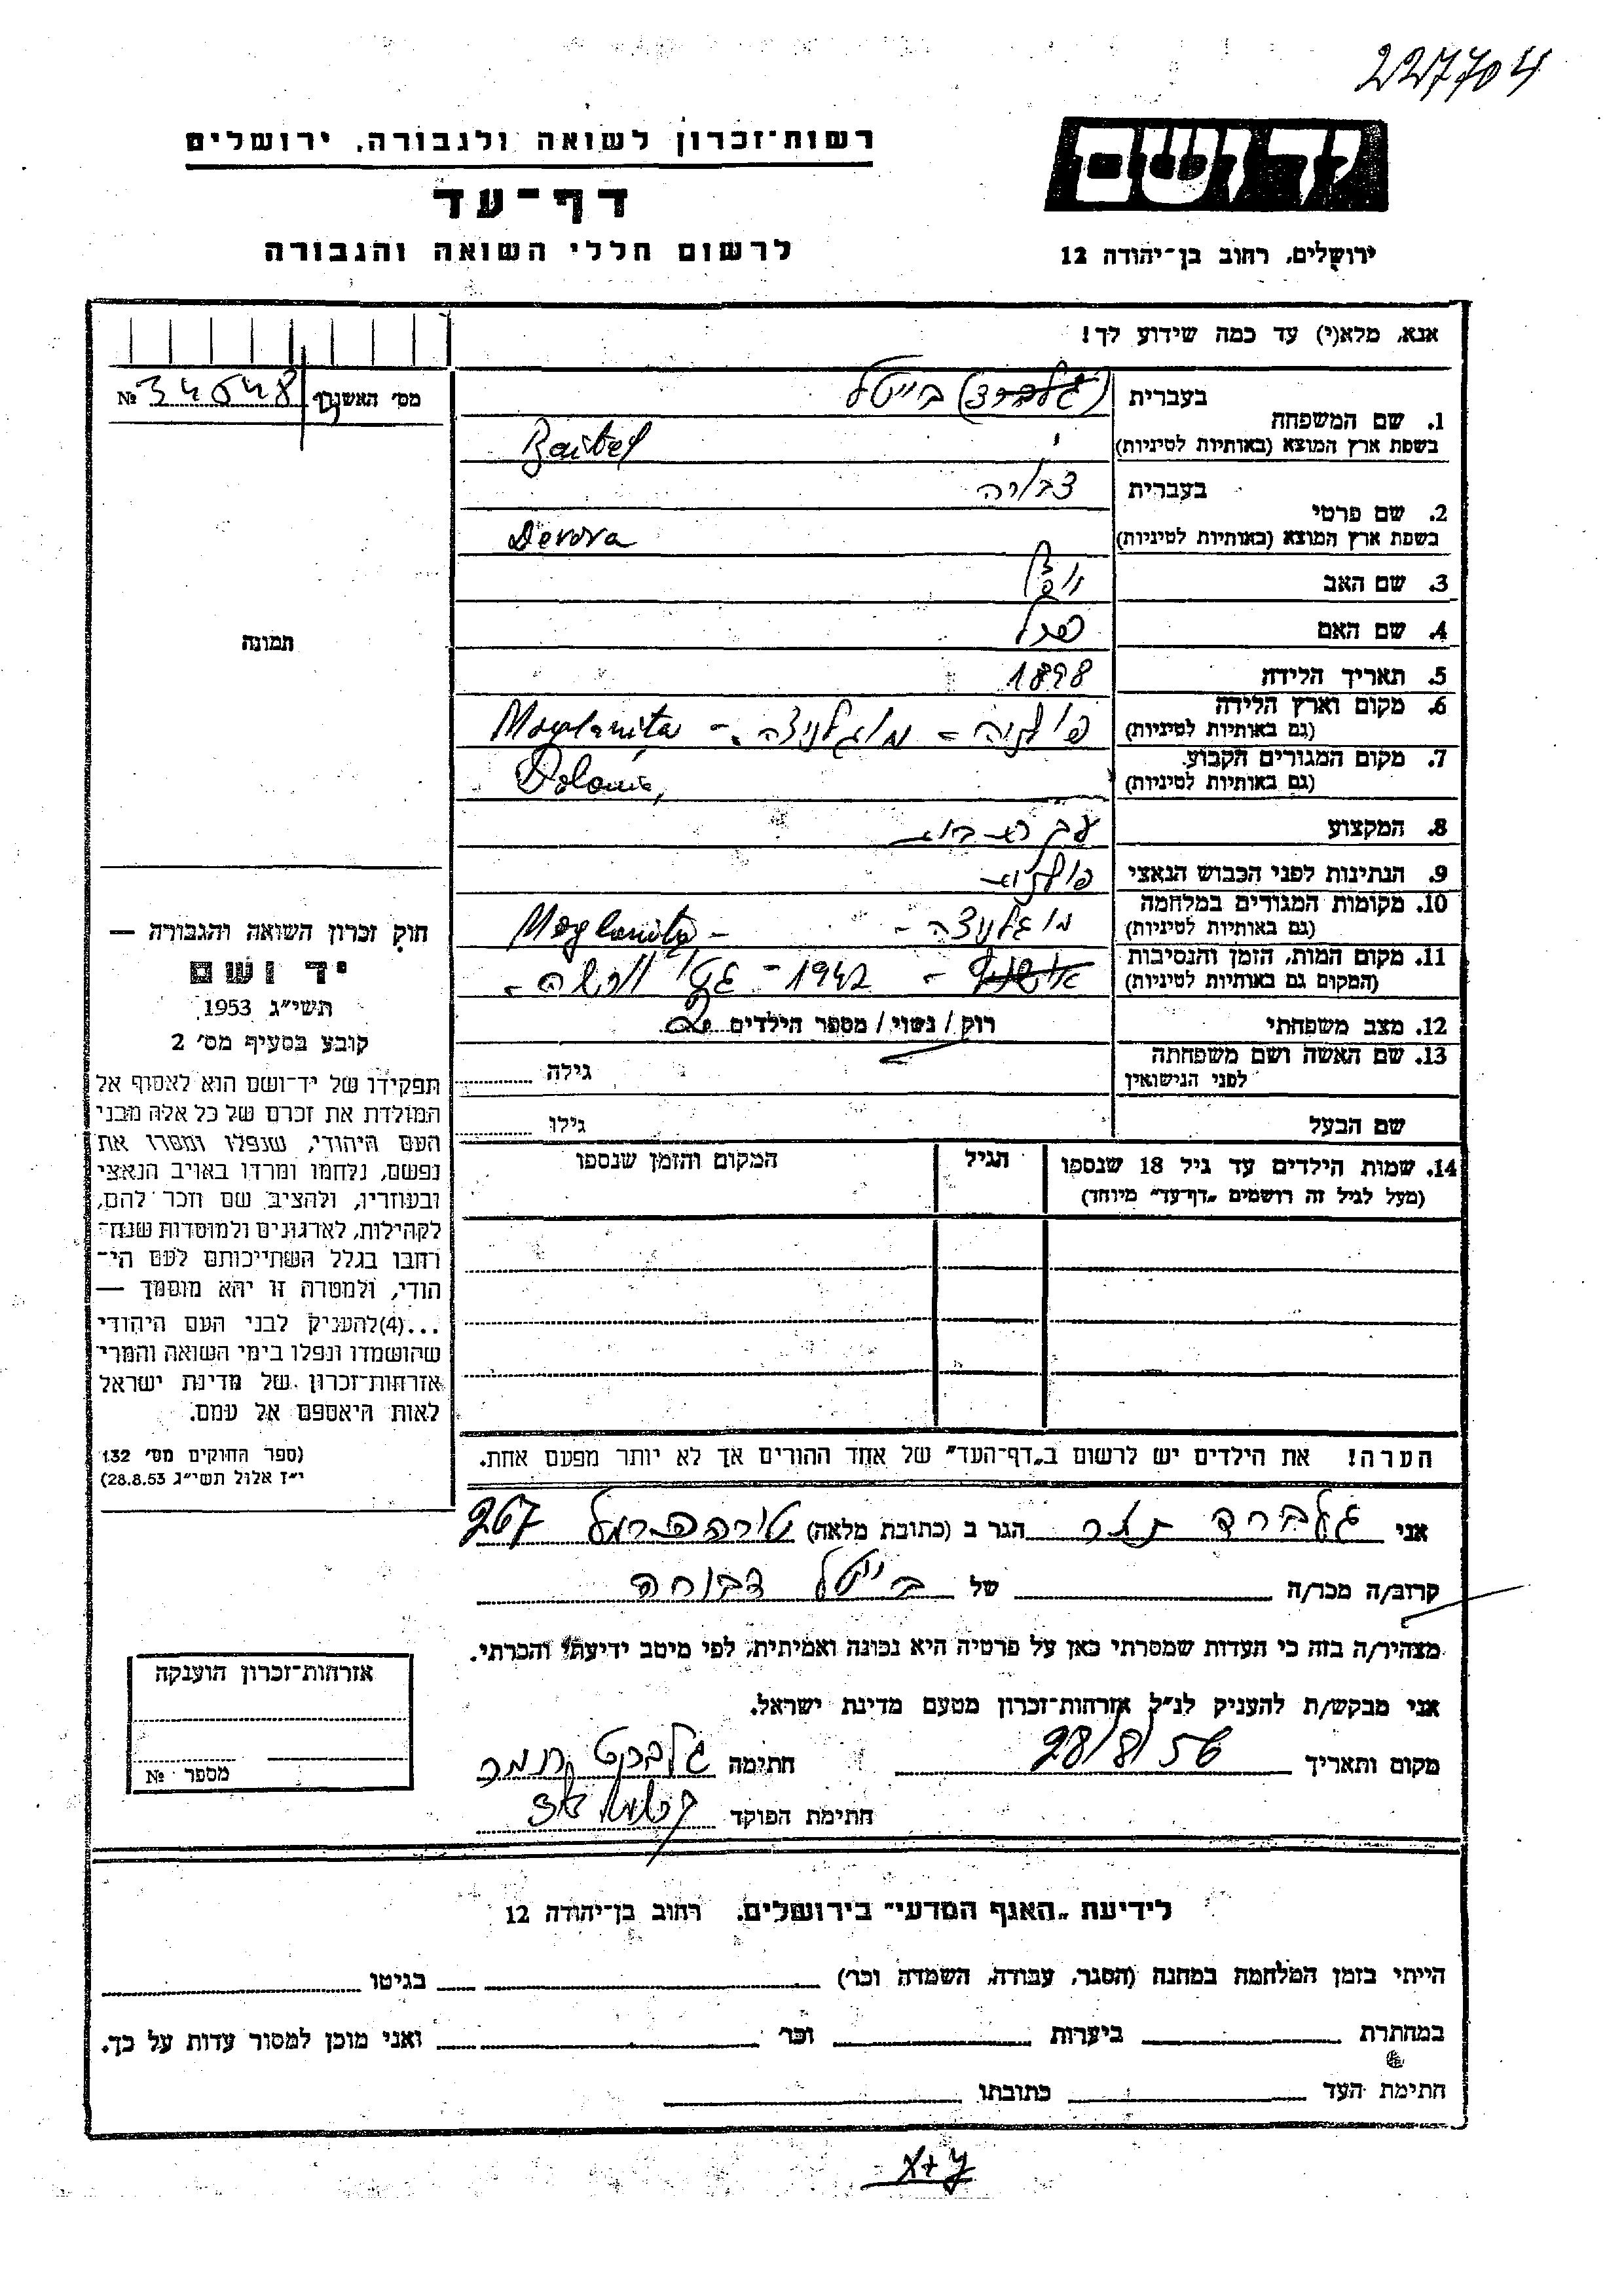 227704
רשות־זכרון לשואה ולגבורה, ירושלים
יד ושם
דף־עד
לרשום חללי השואה והגבורה
ירושלים, רחוב בן־יהודה 12
אנא, מלא(י) עד כמה שידוע לך!
מס׳ האשנב № 34548
1. שם המשפחה בעברית (גלברד) בייטל
בשפת ארץ המוצא (באותיות לטיניות) Baitel
2. שם פרטי בעברית דבורה
בשפת ארץ המוצא (באותיות לטיניות) Devora
3. שם האב
4. שם האם
5. תאריך הלידה 1898
6. מקום וארץ הלידה (גם באותיות לטיניות) פולניה - מוגלניצה - Moglanita
7. מקום המגורים הקבוע (גם באותיות לטיניות) Polania,
8. המקצוע עקרת בית
9. הנתינות לפני הכבוש הנאצי פולנית
10. מקומות המגורים במלחמה (גם באותיות לטיניות) מוגלניצה - Moglanita -
11. מקום המות, הזמן והנסיבות (המקום גם באותיות לטיניות) - 1942 - גטו ורשה -
12. מצב משפחתי רוק / נשוי / מספר הילדים 2
13. שם האשה ושם משפחתה לפני הנישואין גילה
שם הבעל גילו
14. שמות הילדים עד גיל 18 שנספו הגיל המקום והזמן שנספו
(מעל לגיל זה רושמים „דף־עד” מיוחד)
הערה! את הילדים יש לרשום ב„דף־העד” של אחד ההורים אך לא יותר מפעם אחת.
תמונה
חוק זכרון השואה והגבורה —
יד ושם
תשי״ג 1953
קובע בסעיף מס׳ 2
תפקידו של יד־ושם הוא לאסוף אל
המולדת את זכרם של כל אלה מבני
העם היהודי, שנפלו ומסרו את
נפשם, נלחמו ומרדו באויב הנאצי
ובעוזריו, ולהציב שם וזכר להם,
לקהילות, לארגונים ולמוסדות שנח־
רבו בגלל השתייכותם לעם הי־
הודי, ולמטרה זו יהא מוסמך —
...(4)להעניק לבני העם היהודי
שהושמדו ונפלו בימי השואה והמרי
אזרחות־זכרון של מדינת ישראל
לאות היאספם אל עמם.
(ספר החוקים מס׳ 132
י״ז אלול תשי״ג 28.8.53)
אני גלברד תמר הגר ב (כתובת מלאה) טירה הכרמל 267
קרוב/ה מכר/ה של בייטל דבורה
מצהיר/ה בזה כי העדות שמסרתי כאן על פרטיה היא נכונה ואמיתית, לפי מיטב ידיעתי והכרתי.
אני מבקש/ת להעניק לנ״ל אזרחות־זכרון מטעם מדינת ישראל.
מקום ותאריך 28/8/56 חתימה גלברט תמר
חתימת הפוקד
אזרחות־זכרון הוענקה
מספר №
לידיעת „האגף המדעי” בירושלים, רחוב בן־יהודה 12
הייתי בזמן המלחמה במחנה (הסגר, עבודה, השמדה וכו׳) בגיטו
במחתרת ביערות וכו׳ ואני מוכן למסור עדות על כך.
חתימת העד כתובתו